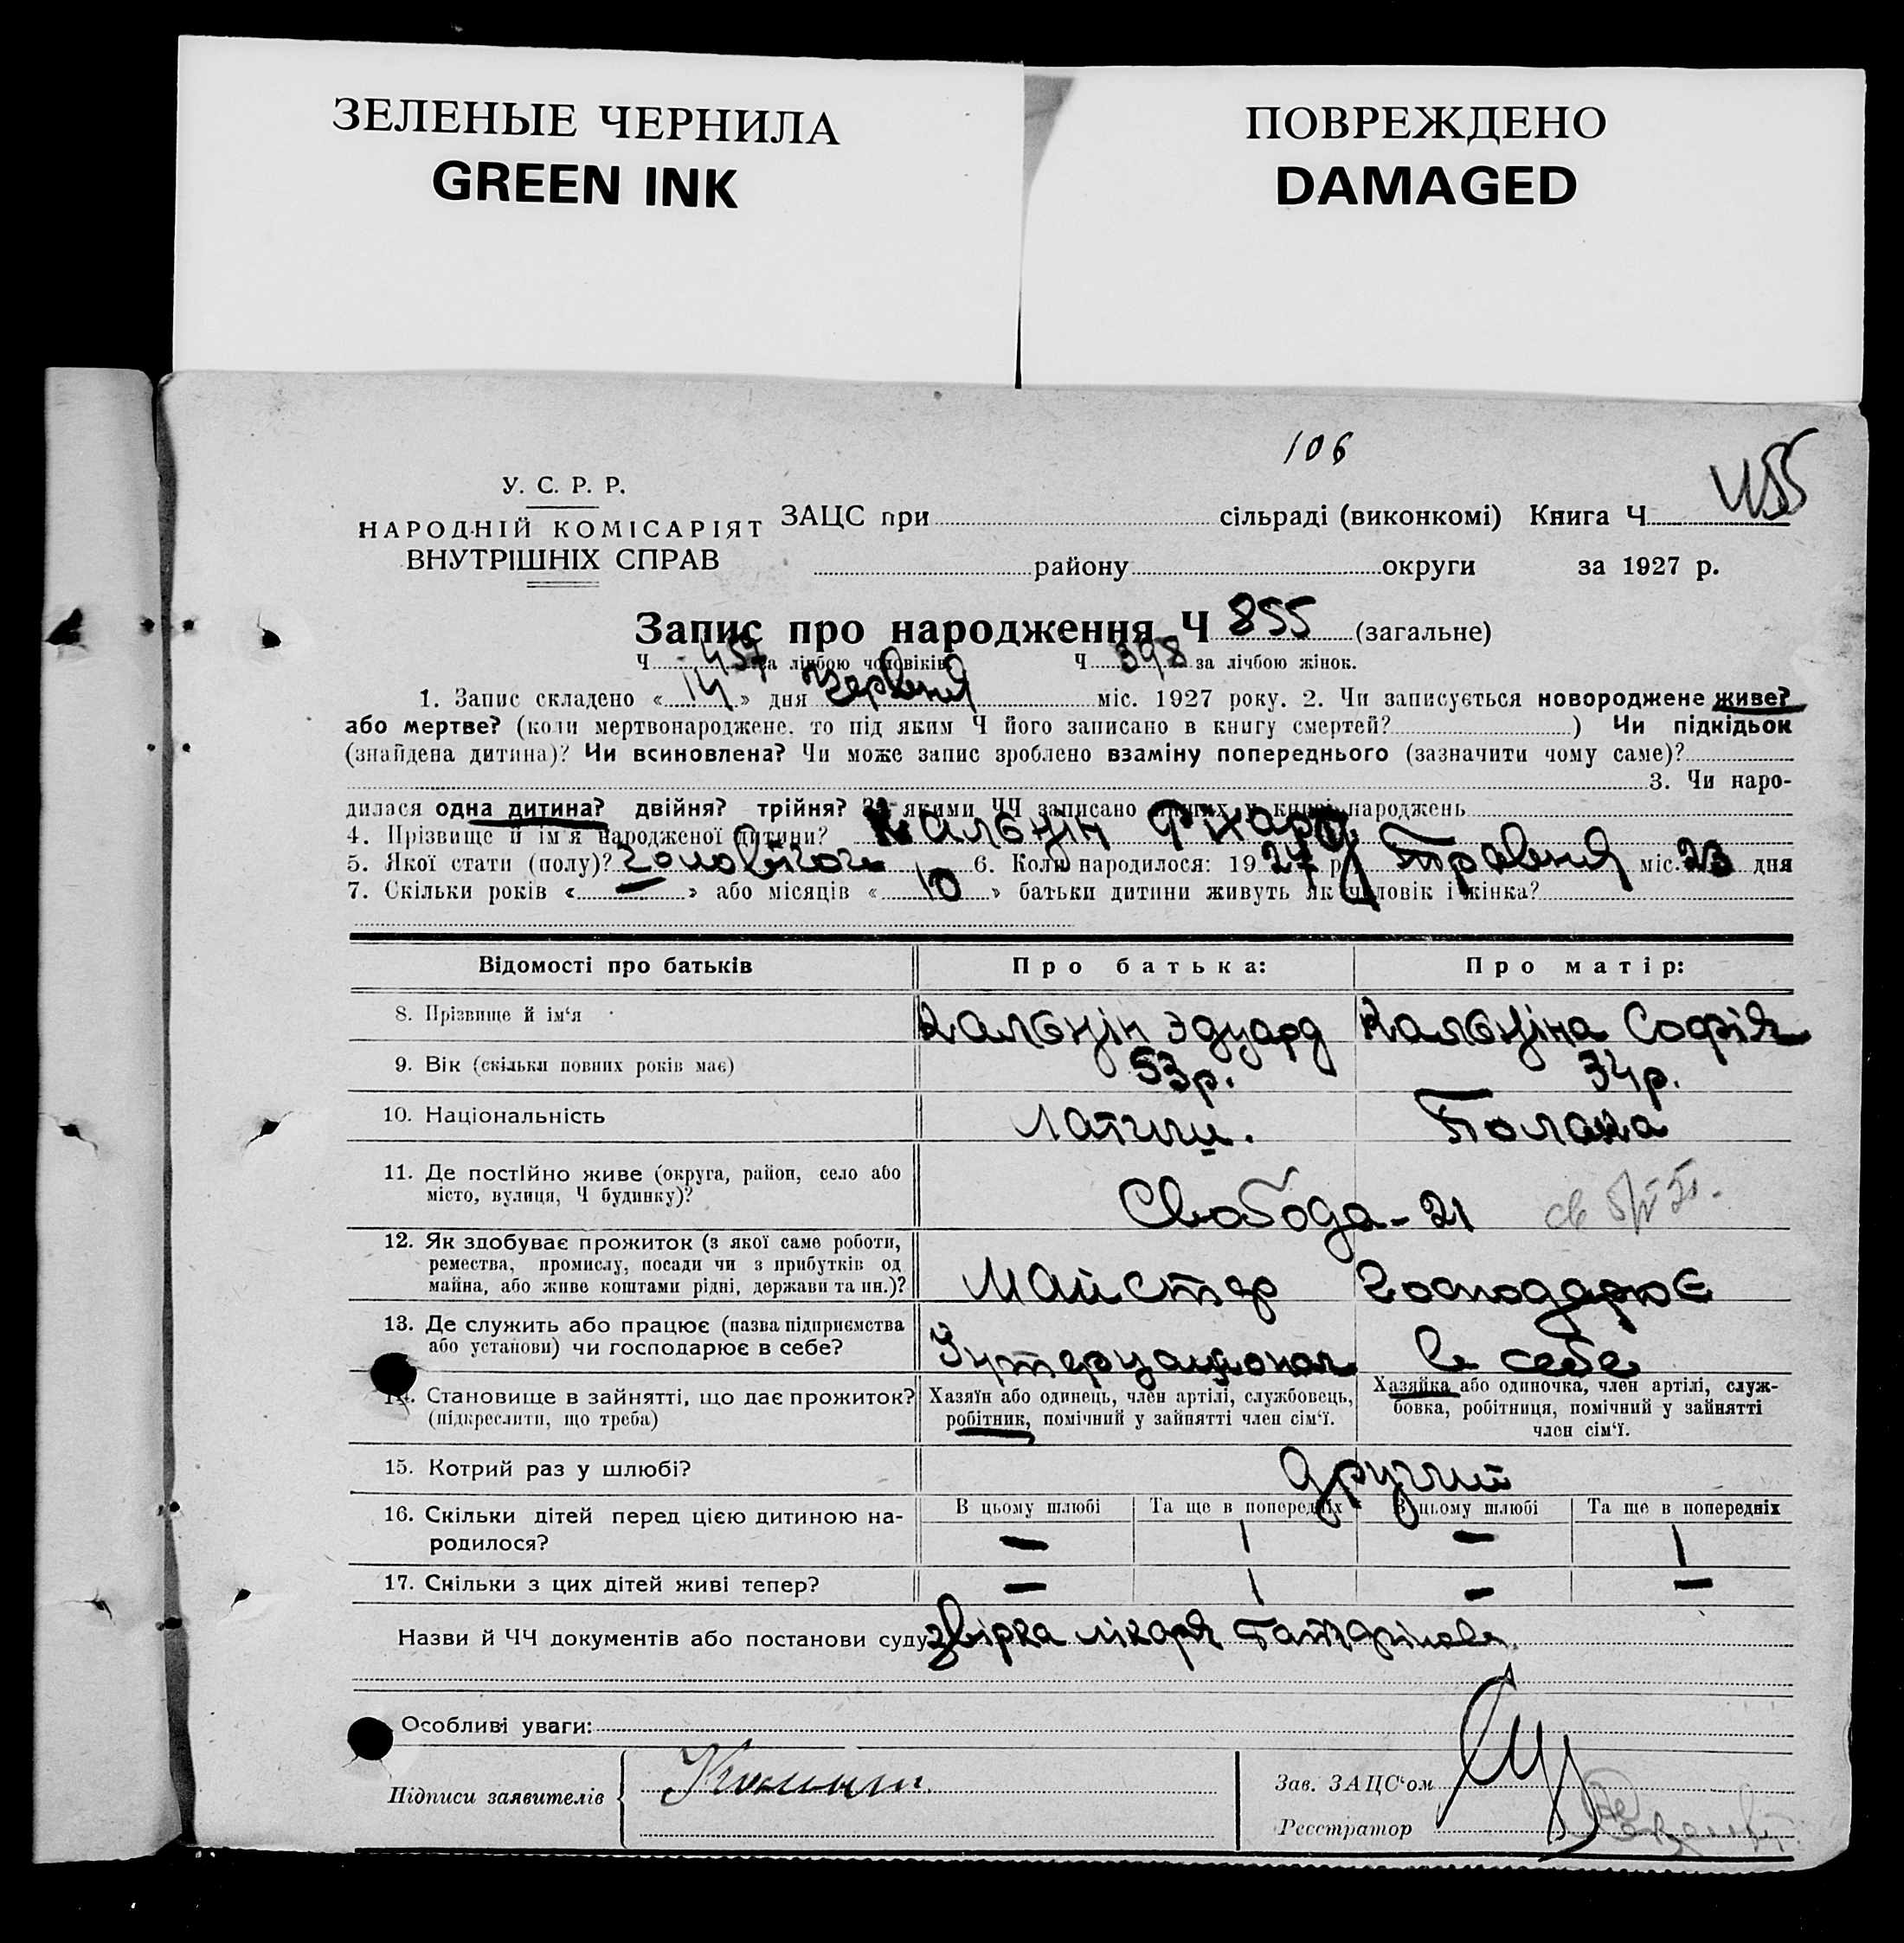 ЗЕЛЕНЫЕ ЧЕРНИЛА
GREEN INK
ПОВРЕЖДЕНО
DAMAGED
106
У. С. Р. Р.
НАРОДНІЙ КОМІСАРІЯТ
ВНУТРІШНІХ СПРАВ
ЗАЦС при сільраді (виконкомі) Книга Ч
району округи за 1927 р.
Запис про народження Ч 855 (загальне)
Ч 457 за лічбою чоловіків Ч 398 за лічбою жінок.
1. Запис складено « 14 » дня Червня міс. 1927 року. 2. Чи записується новороджене живе?
або мертве? (коли мертвонароджене, то під яким Ч його записано в книгу смертей? ) Чи підкідьок
(знайдена дитина)? Чи всиновлена? Чи може запис зроблено взаміну попереднього (зазначити чому саме)?
3. Чи наро-
дилася одна дитина? двійня? трійня? За якими ЧЧ записано інших у книзі народжень
4. Прізвище й ім'я народженої дитини? Кальнін Ріхард
5. Якої стати (полу)? Чоловічої 6. Коли народилося: 1927 р. Травня міс. 23 дня
7. Скільки років « — » або місяців « 10 » батьки дитини живуть як чоловік і жінка?
Відомості про батьків Про батька: Про матір:
8. Прізвище й ім'я Кальнін Эдуард Кальніна Софія
9. Вік (скільки повних років має) 53 р. 34 р.
10. Національність Латиш. Полька
11. Де постійно живе (округа, район, село або
місто, вулиця, Ч будинку)? Свобода - 21
12. Як здобуває прожиток (з якої саме роботи,
ремества, промислу, посади чи з прибутків од
майна, або живе коштами рідні, держави та ин.)? Майстер Господарює
13. Де служить або працює (назва підприємства
або установи) чи господарює в себе? Інтернаціонал в себе
14. Становище в зайнятті, що дає прожиток?
(підкреслити, що треба)
Хазяїн або одинець, член артілі, службовець,
робітник, помічний у зайнятті член сім'ї.
Хазяйка або одиночка, член артілі, служ-
бовка, робітниця, помічний у зайнятті
член сім'ї.
15. Котрий раз у шлюбі? другий
16. Скільки дітей перед цією дитиною на-
родилося?
В цьому шлюбі Та ще в попередніх В цьому шлюбі Та ще в попередніх
— 1 — 1
17. Скільки з цих дітей живі тепер? — 1 — —
Назви й ЧЧ документів або постанови суду звірка лікаря
Особливі уваги:
Підписи заявителів
Зав. ЗАЦС'ом
Реєстратор